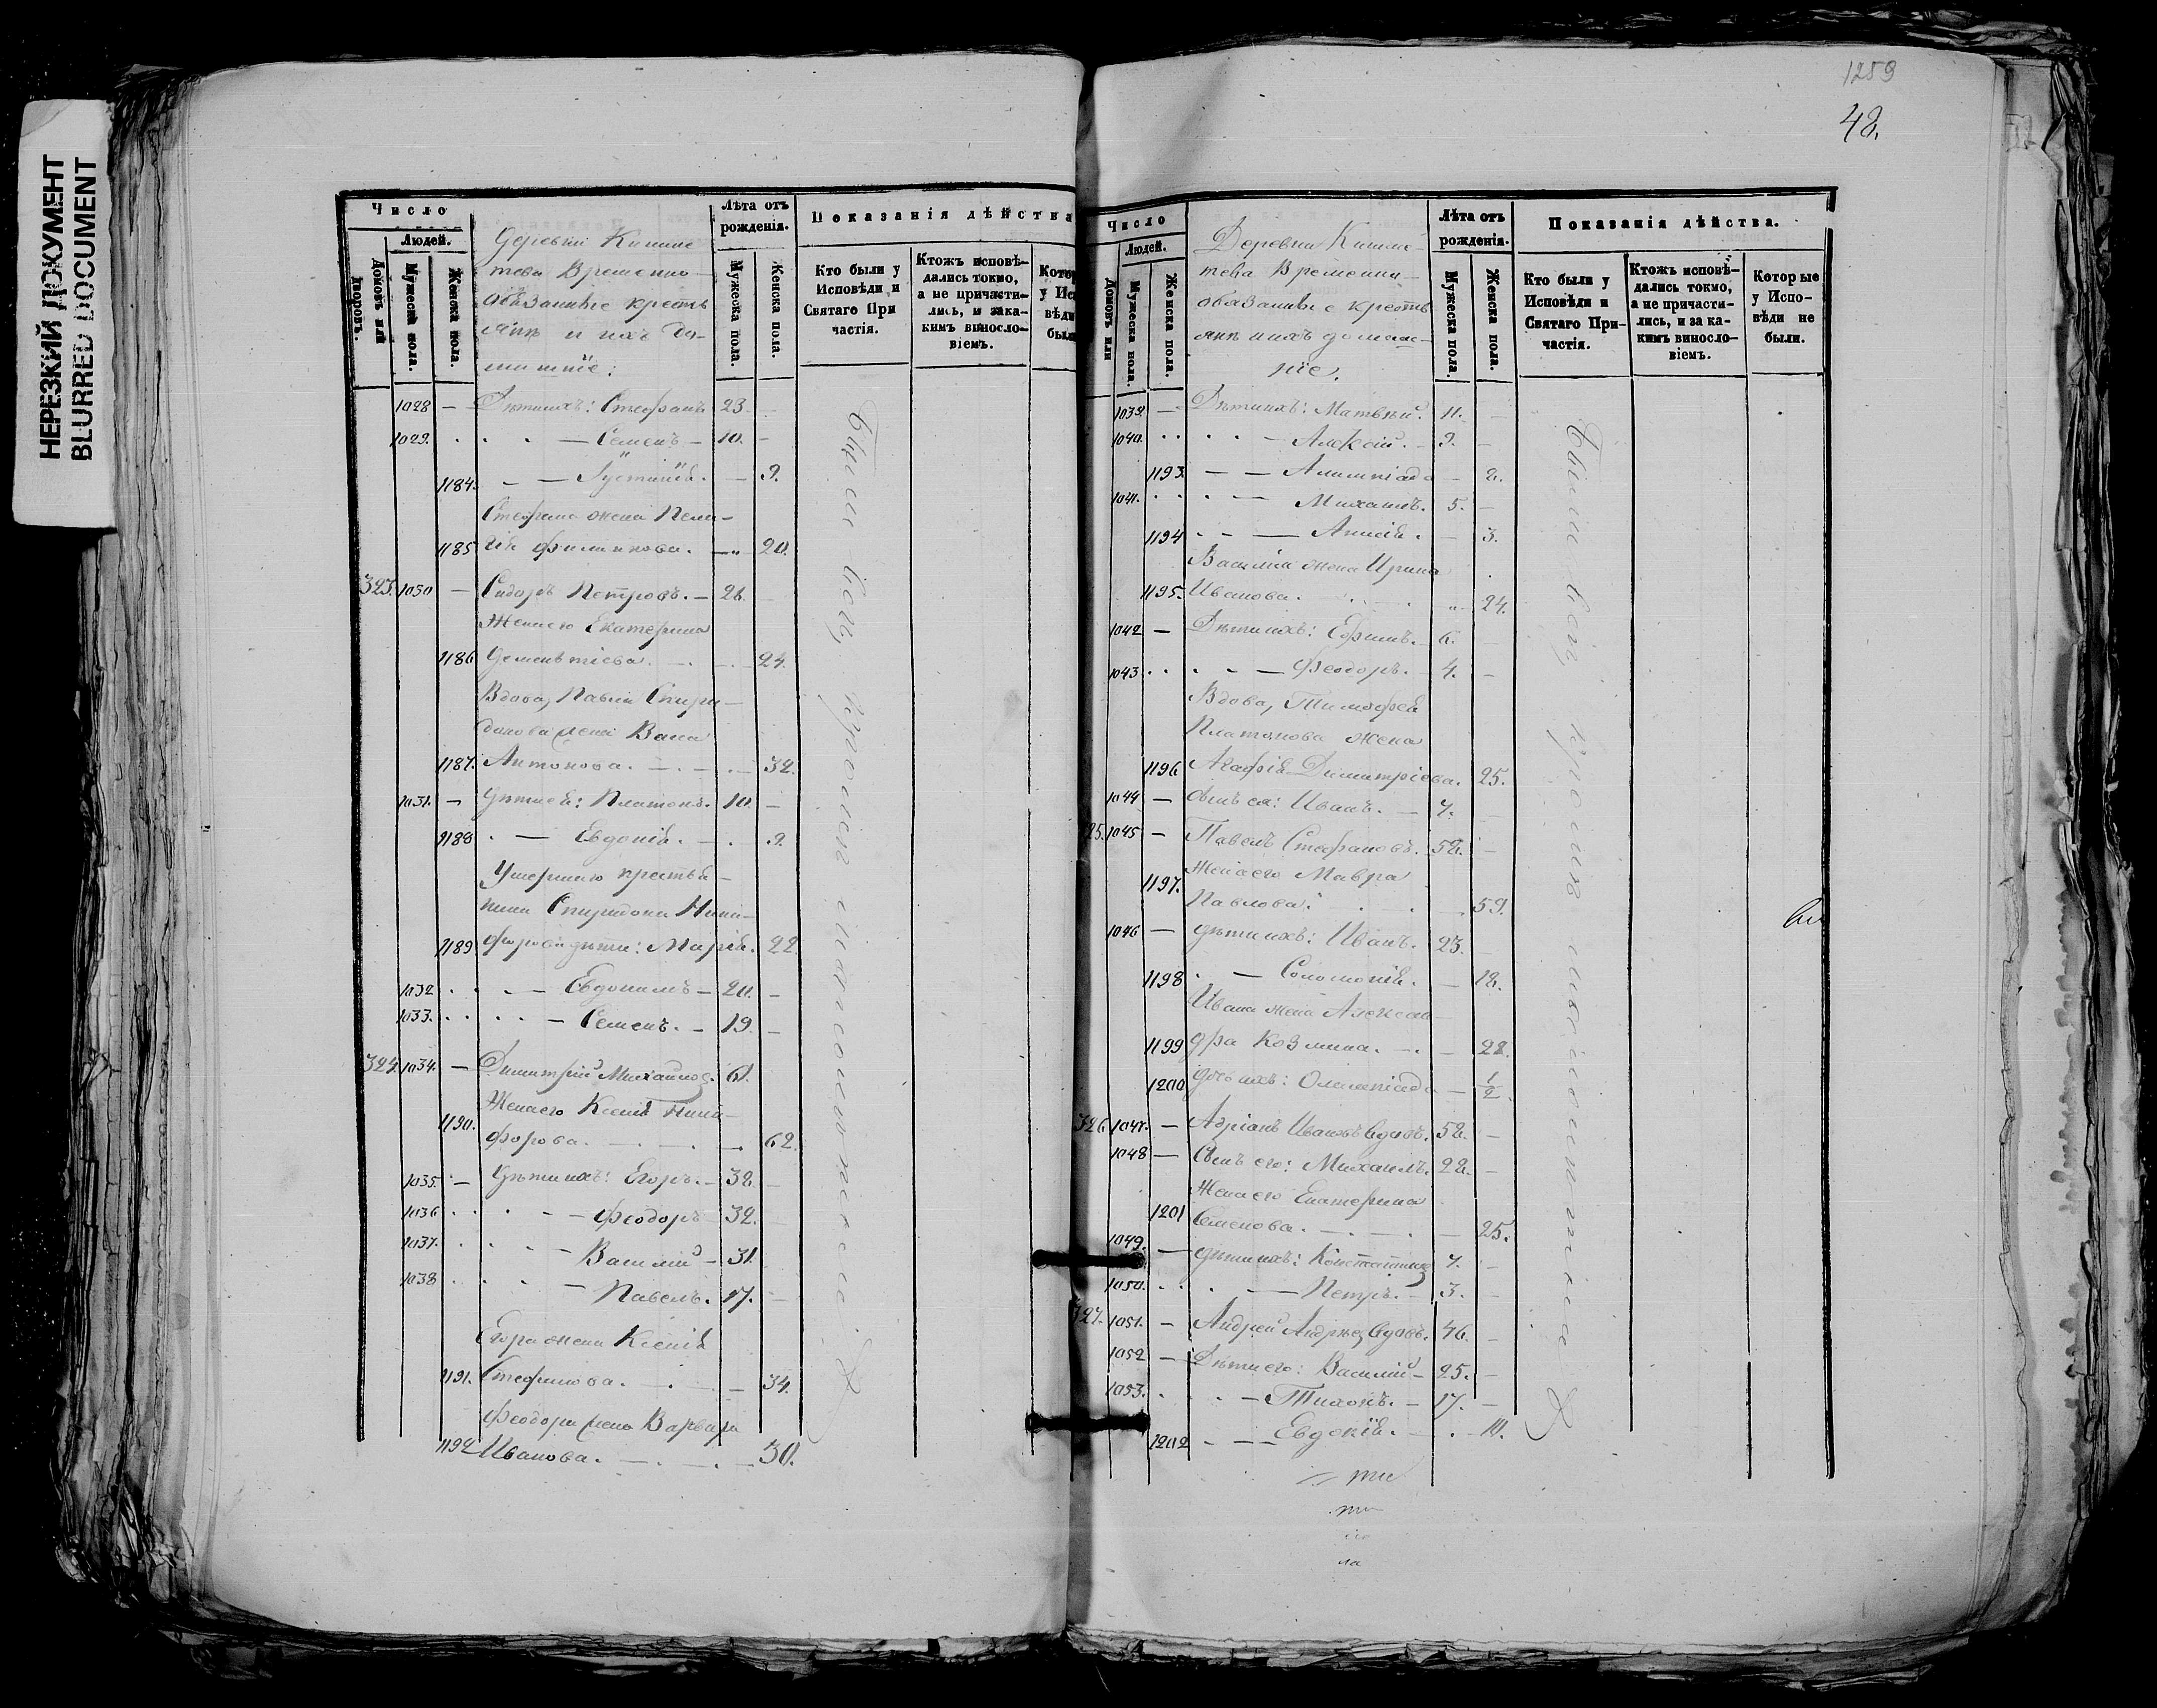 НЕРЕЗКИЙ ДОКУМЕНТ
BLURRED DOCUMENT
Число
Людей.
Домовъ или дворовъ.
Мужеска пола.
Женска пола.
Деревни Кишме-
тева Временно-
обязанные кресть
яне и ихъ До-
машніе:
Лѣта отъ рожденія.
Мужеска пола.
Женска пола.
Показанія дѣйства
Кто были у Исповѣди и Святаго При частія.
Ктожъ исповѣ- дались токмо, а не причасти- лись, и за ка- кимъ винословіемъ.
1028 — Дѣти ихъ: Стефанъ 23. —
1029. — Семенъ — 10. —
1184. — — Іустинія. — 9.
Стефана жена Пела-
1185 гія Филипова. — 20.
323. 1030 — Сидоръ Петровъ. — 26. —
Жена его Екатерина
1186 Дементіева. — 24.
Вдова, Павла Спири-
донова жена Васса
1187. Антонова. — 32.
1031. — Дѣти ея: Платонъ. 10. —
1188 — Евдокія. — 9.
Умершаго крестья-
нина Спиридона Ники-
1189 форова дѣти: Марія. 22.
1032 — Евдокимъ — 20. —
1033. — Семенъ. — 19. —
324. 1034. — Димитрій Михайлов. 61.
Жена его Ксенія Ники-
1190. форова. — 62.
1035. — Дѣти ихъ: Егоръ. — 38. —
1036 — Феодоръ 32. —
1037. — Василій — 31.
1038 — Павелъ. 17. —
Егора жена Ксенія
1191. Стефанова. — 34.
Феодора жена Варвара
1192 Иванова. — 30.
Были вси, кромѣ
1259
48.
Число
Людей.
Домовъ или
Мужеска пола.
Женска пола.
Деревни Кишме-
тева Временно-
обязанные кресть
яне и ихъ домаш-
ніе.
Лѣта отъ рожденія.
Мужеска пола.
Женска пола.
Показанія дѣйства.
Кто были у Исповѣди и Святаго При- частія.
Ктожъ исповѣ- дались токмо, а не причасти- лись, и за ка- кимъ винословіемъ.
Которые у Испо- вѣди не были.
1039. — Дѣти ихъ: Матвѣй. 11. —
1040. — Алексій. — 9. —
1193. — — Алимпіада — 8.
1041. — Михаилъ. 5. —
1194 — Анисія. — 3.
Василія жена Ирина
1195. Иванова. — 24.
1042 — Дѣти ихъ: Ефимъ. 6. —
1043 — Феодоръ. — 4. —
Вдова, Тимофея
Платонова жена
1196 Агафія Димитріева. 25.
1044 — сынъ ея: Иванъ. — 7.
25. 1045 — Павелъ Стефановъ. 58. —
Жена его Мавра
1197. Павлова. — 59.
1046 — Дѣти ихъ: Иванъ. 23. —
1198 — Соломонія. — 18.
Ивана жена Алексан-
1199 дра Козмина. — 28.
1200 дочь ихъ: Олимпіада — 1/2.
326 1047. — Адріанъ Ивановъ вдовъ. 58. —
1048 — Сынъ его: Михаилъ. 28. —
Жена его Екатерина
1201 Семенова. — 25.
1049. — Дѣти ихъ: Константинъ 7. —
1050. — Петръ. — 3. —
327. 1051. — Андрей Андреев вдовъ. 46. —
1052 — Дѣти его: Василій — 25. —
1053. — Тихонъ. — 17. —
1202 — — Евдокія. — 10.
Были вси, кромѣ